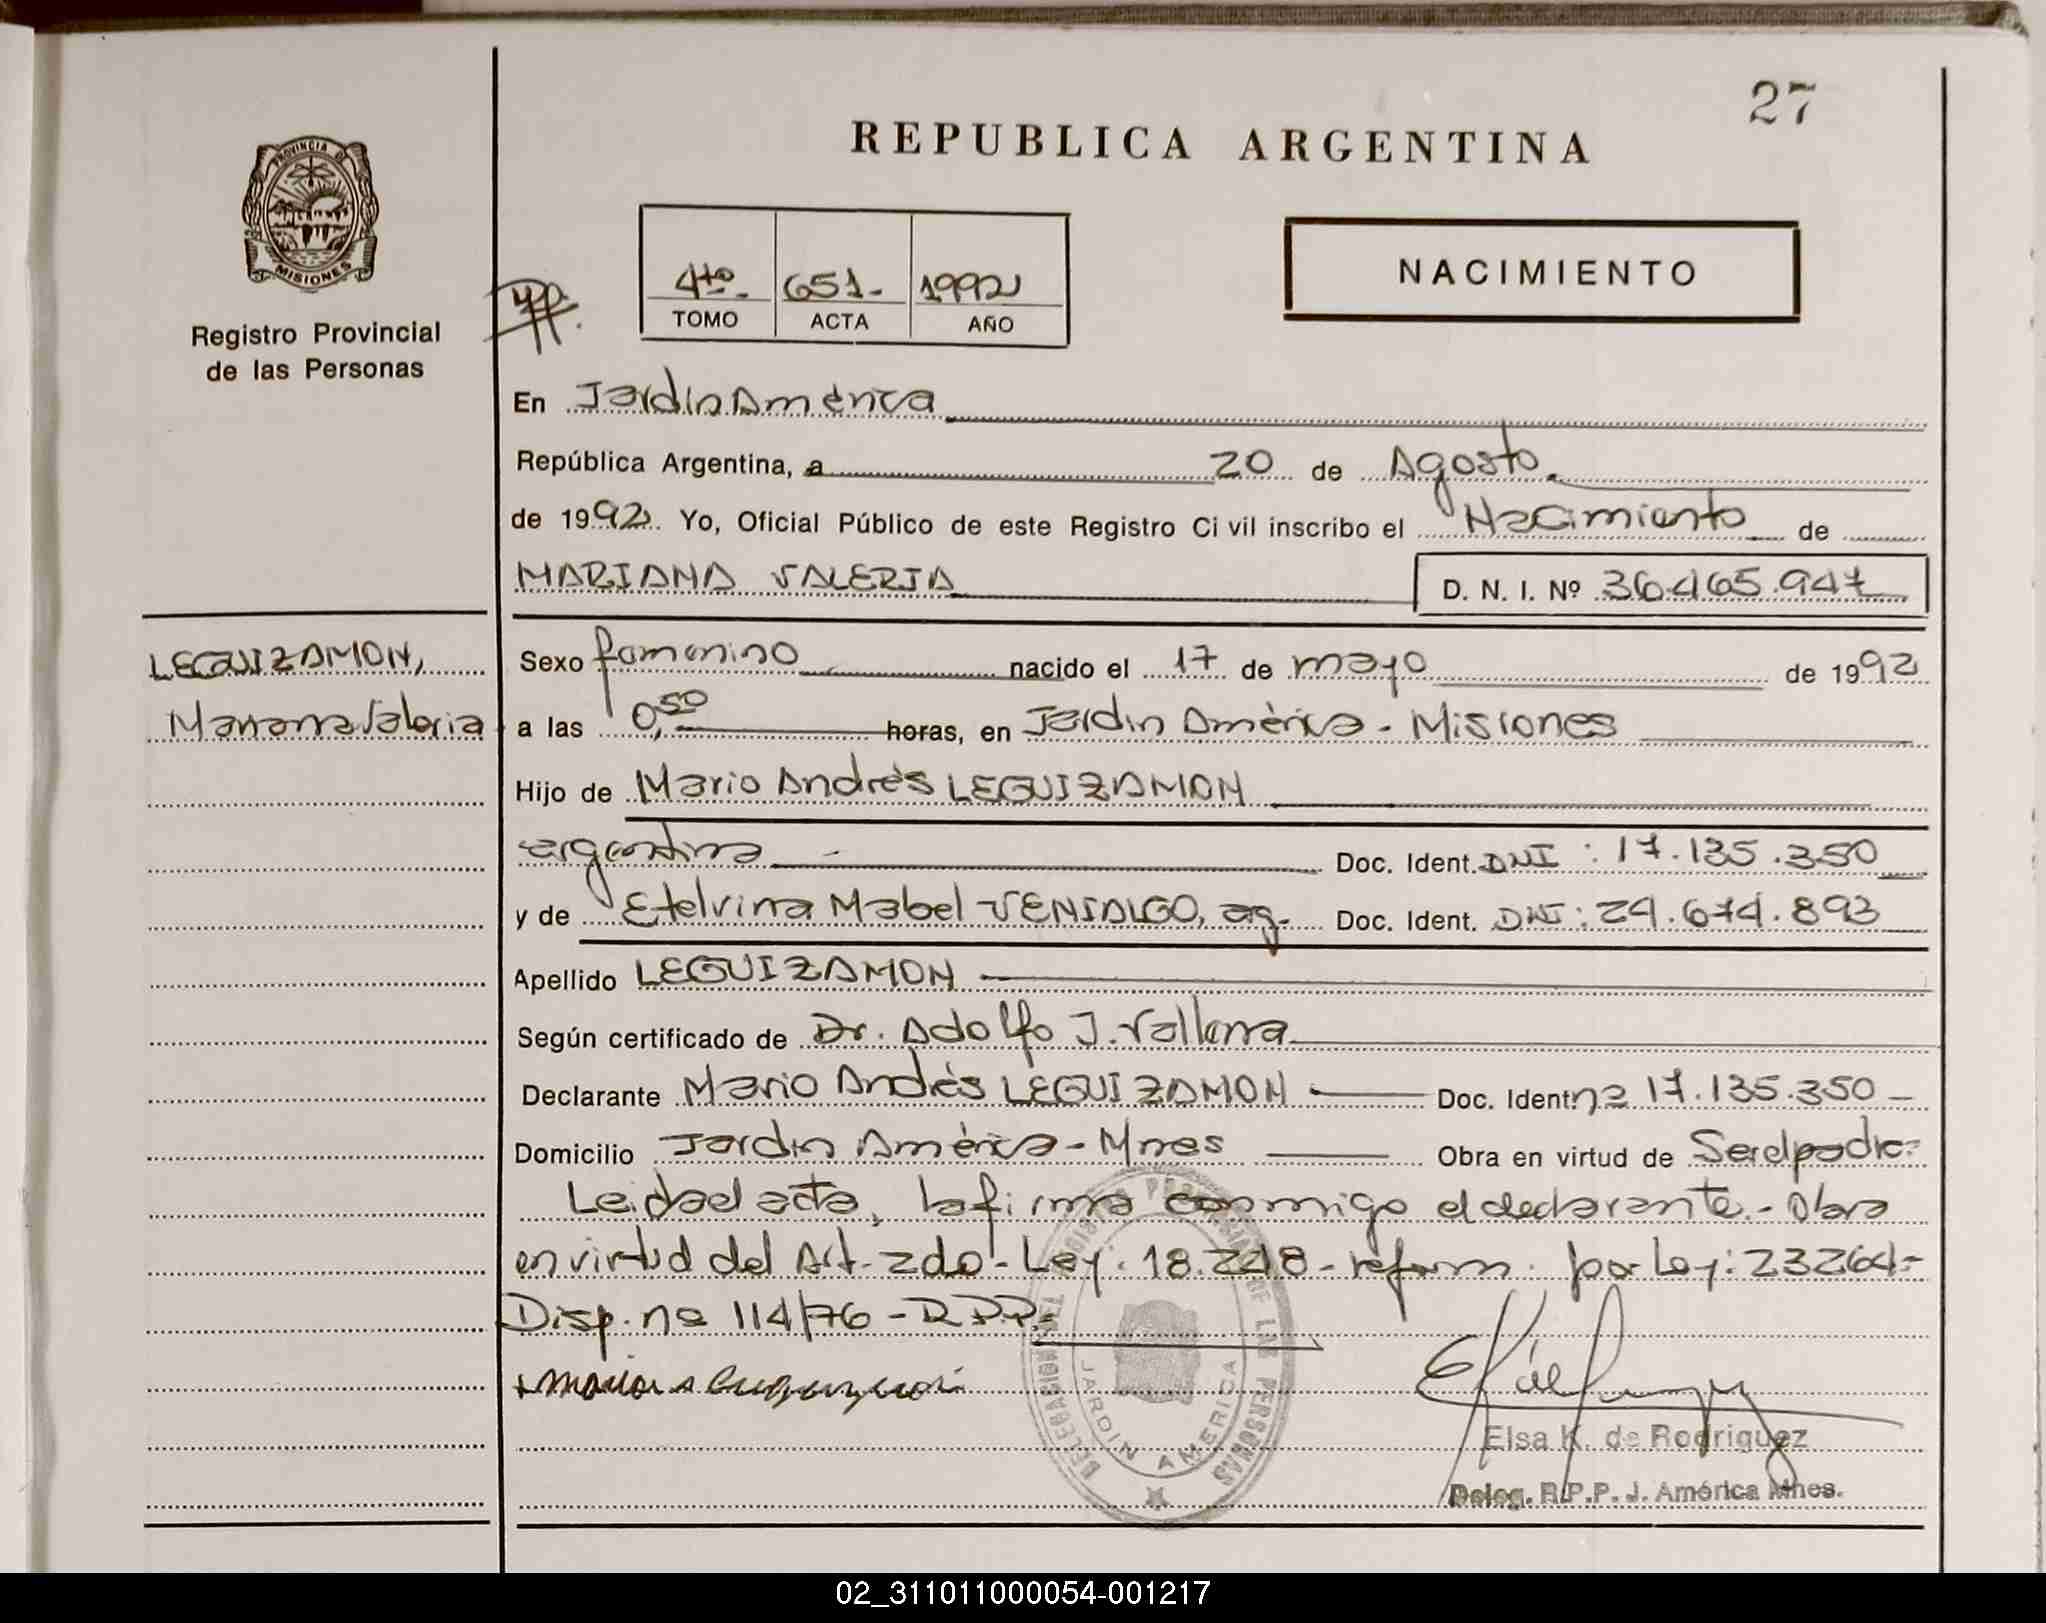 27
REPUBLICA ARGENTINA
PROVINCIA DE
MISIONES
Registro Provincial
de las Personas
4to. 651- 1992
TOMO ACTA AÑO
NACIMIENTO
En Jardin América
República Argentina, a 20 de Agosto.
de 1992. Yo, Oficial Público de este Registro Civil inscribo el Nacimiento de
MARIANA VALERIA D. N. I. Nº 36.465.947
LEGUIZAMON,
Mariana Valeria
Sexo femenino nacido el 17 de mayo de 1992
a las 0,50 horas, en Jardin América - Misiones
Hijo de Mario Andrés LEGUIZAMON
argentina Doc. Ident. DNI : 17.135.350
y de Etelvina Mabel VENIALGO, ag. Doc. Ident. DNI : 24.674.893
Apellido LEGUIZAMON
Según certificado de Dr. Adolfo J.
Declarante Mario Andrés LEGUIZAMON Doc. Ident. nº 17.135.350
Domicilio Jardin América - Mnes Obra en virtud de Ser el padre
Leida el acta, la firma conmigo el declarante.- Obra
en virtud del Art. 2do - Ley: 18.248 - reform. por Ley: 23264-
Disp. nº 114/76 - R.P.P.
DELEGACION DEL REGISTRO PROVINCIAL DE LAS PERSONAS
JARDIN AMERICA
Elsa K. de Rodriguez
Deleg. R.P.P. J. América Mnes.
02_311011000054-001217